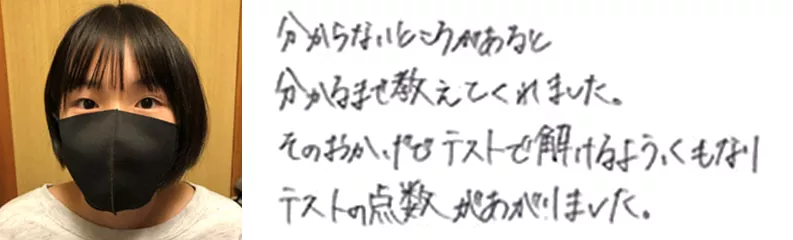 分からないところがあると
分かるまで教えてくれました。
そのおかげでテストで解けるようにもなり
テストの点数があがりました。